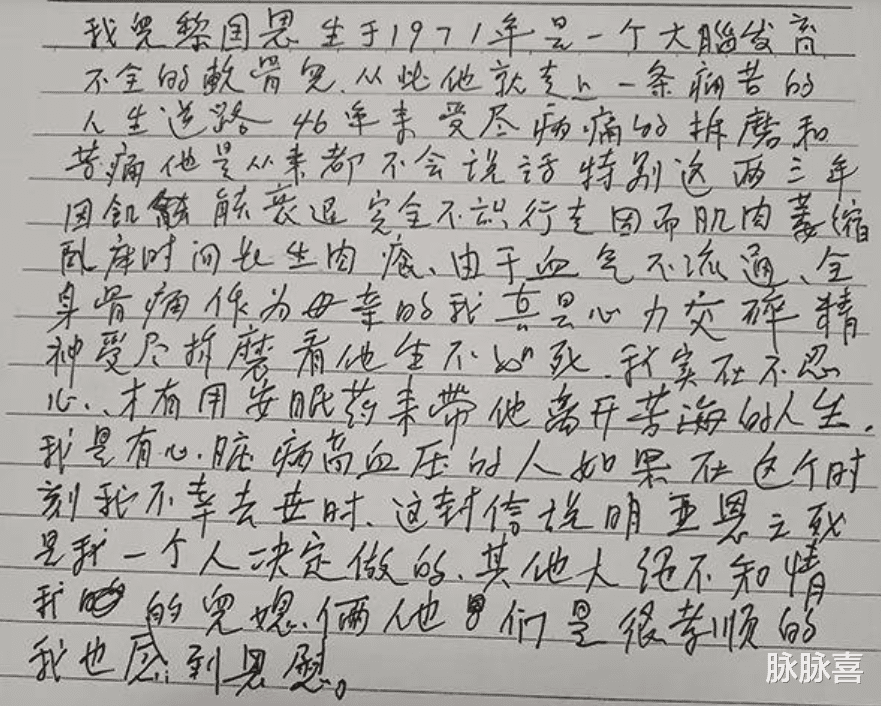 我兒黎国恩生于1971年是一个大腦发育
不全的軟骨兒.从此他就走上一条痛苦的
人生道路46年来受尽病痛的折磨和
苦痛他是从来都不会说话特别这两三年
因飢能衰退完全不识行走因而肌肉萎缩
臥床时间长生肉疮、由于血气不流通、全
身骨痛作为母亲的我真是心力交碎精
神受尽折磨看他生不如死.我实在不忍
心、才有用安眠药来带他离开苦海的人生.
我是有心.脏病高血压的人如果在这个时
刻我不幸去世时、这封信说明亚恩之死
是我一个人决定做的、其他人绝不知情
我的兒媳.俩他们是很孝顺的
我也感到恩慰。
脉脉喜